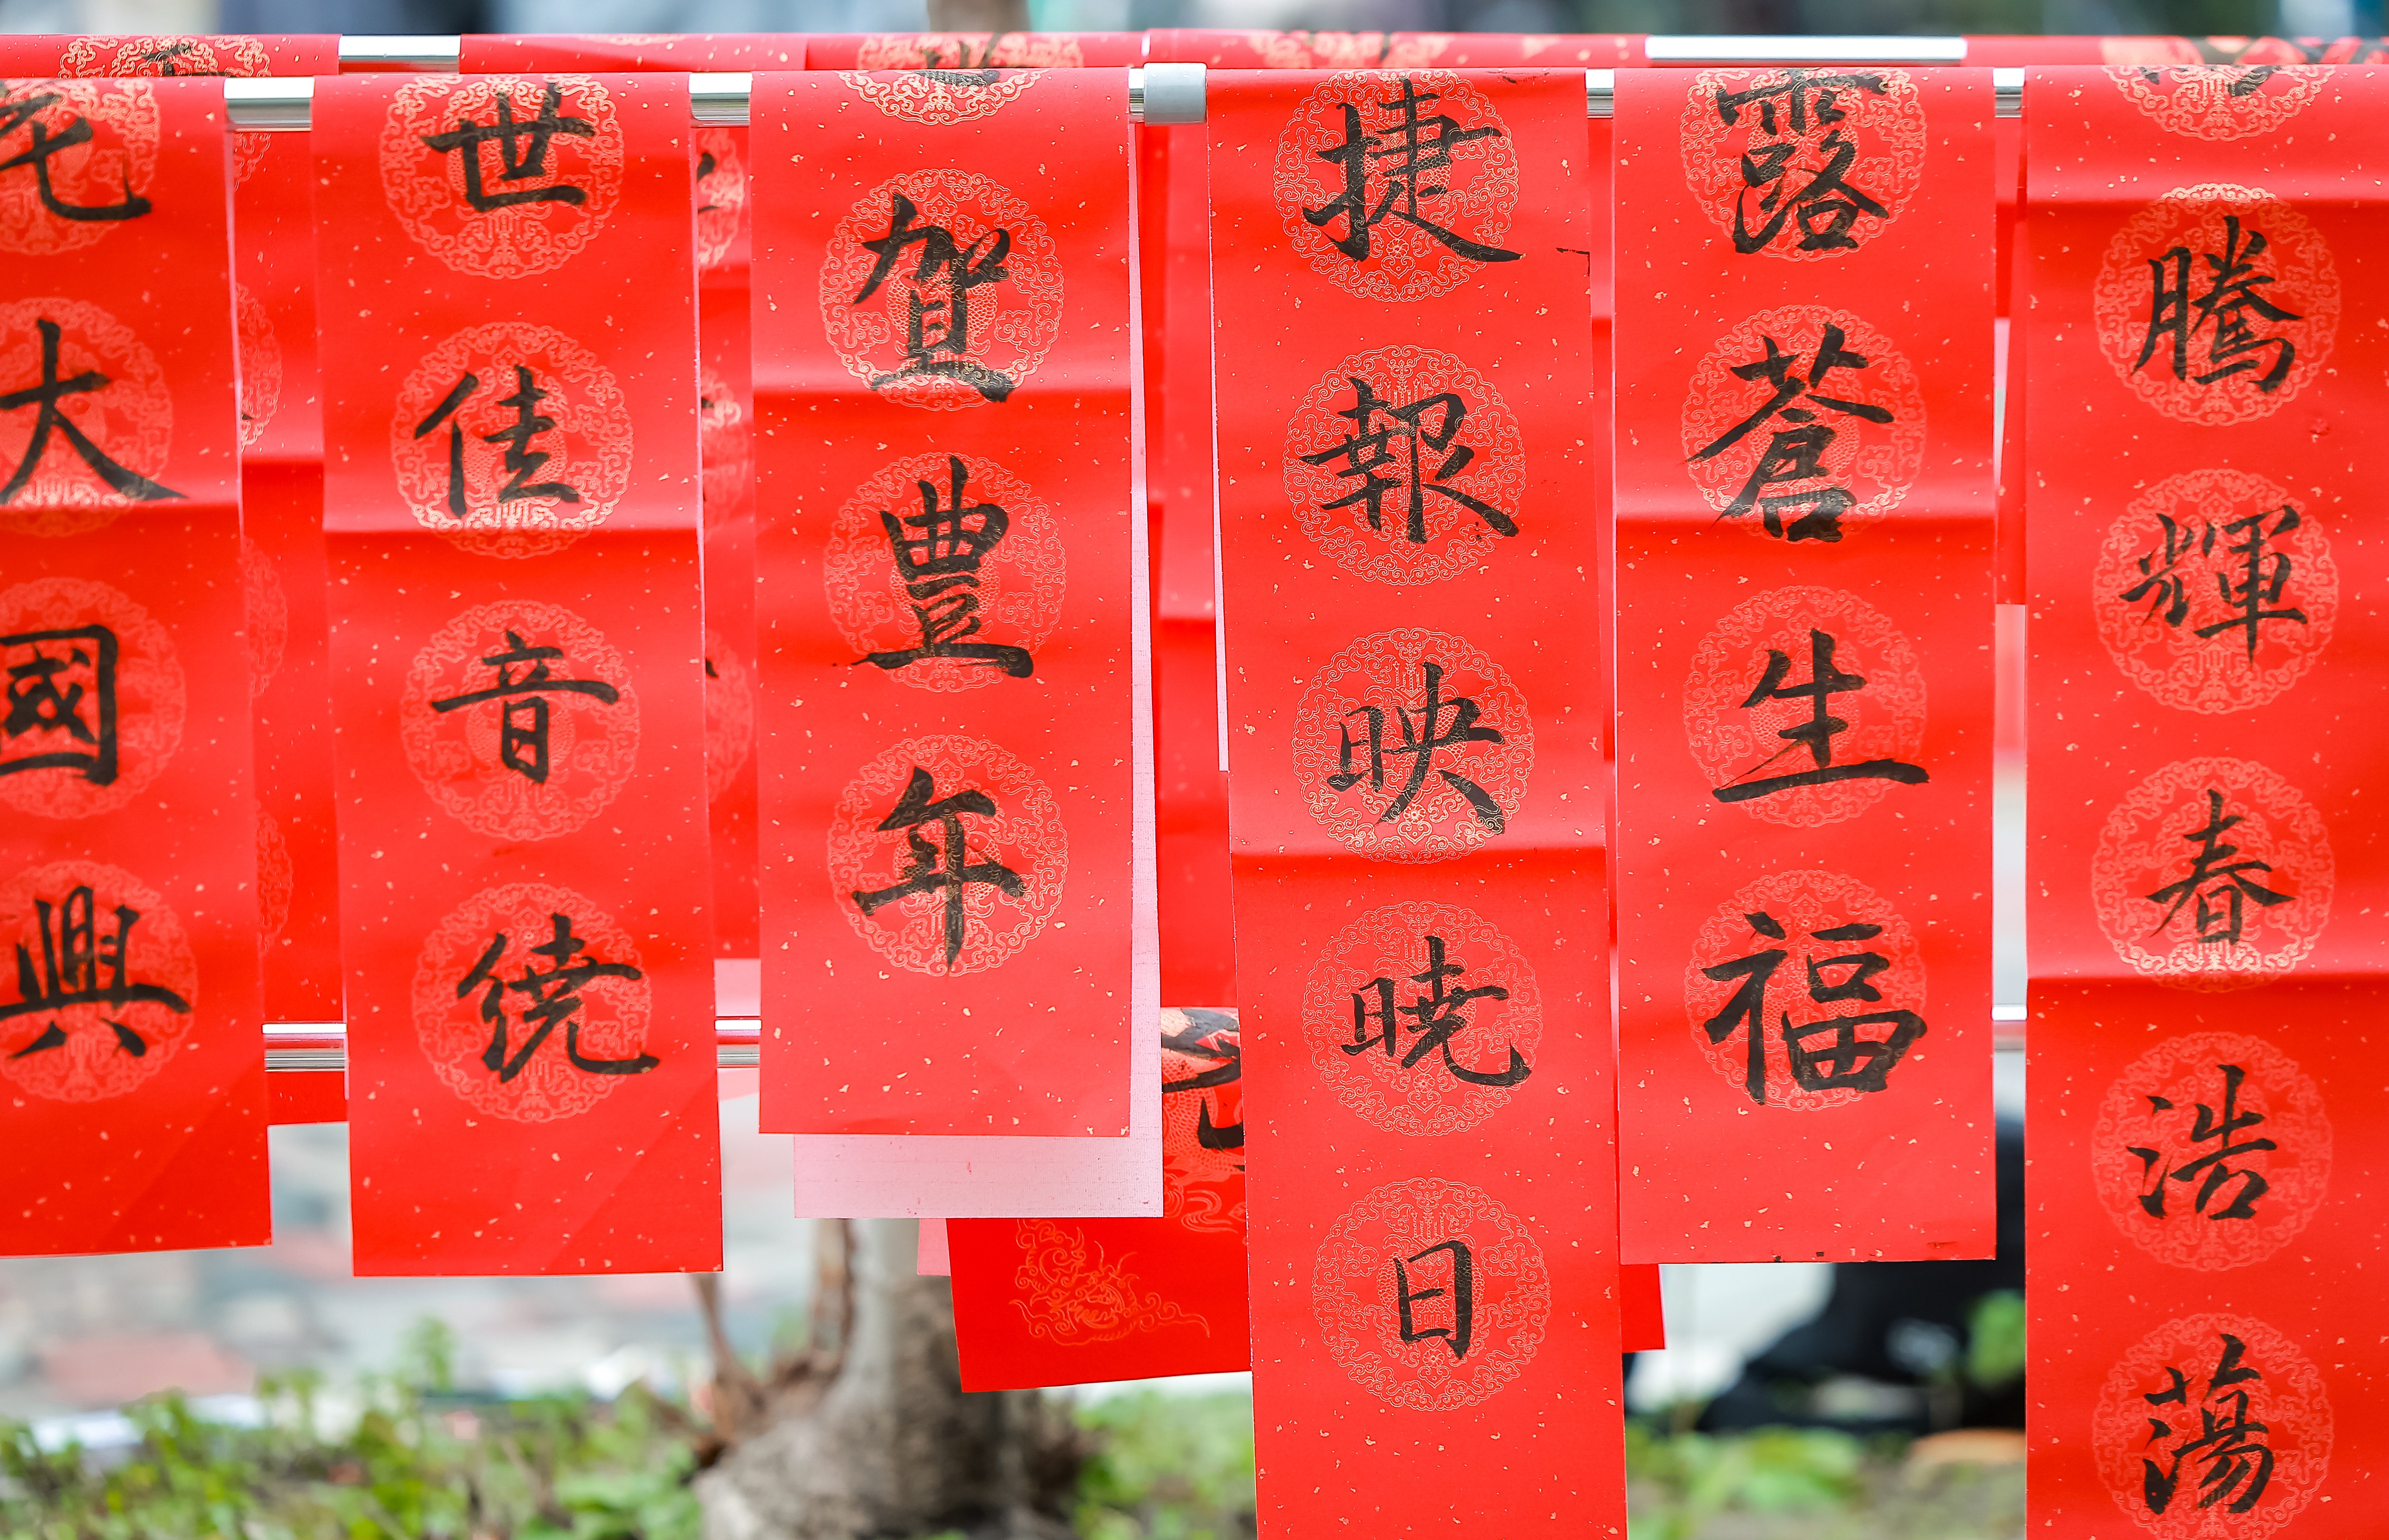 騰輝春浩蕩
露蒼生福
捷報映曉日
賀豊年
世佳音繞
大國興